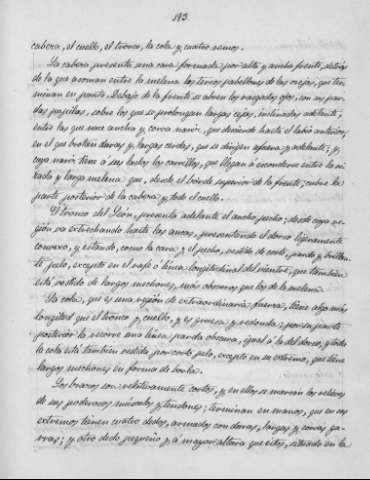 193.
cabeza, el cuello, el tronco, la cola y cuatro remos.
La cabeza presenta una cara formada por alta y ancha frente, detrás
de la que asoman entre la melena los tersos pabellones de las orejas, que ter-
minan en punta. Debajo de la frente se abren los rasgados ojos, con sus par-
das pupilas, sobre los que se prolongan largas cejas, inclinadas adelante,
entre las que nace ancha y corva nariz, que desciende hasta el labio anterior,
en el que brotan duras y largas cerdas, que se dirigen afuera y adelante; y
cuya nariz tiene á sus lados los carrillos, que llegan á esconderse entre la ri-
zada y larga melena que, desde el borde superior de la frente, cubre la
parte posterior de la cabeza y todo el cuello.
El tronco del Leon, presenta adelante el ancho pecho; desde cuya re-
gión va estrechando hasta las ancas, presentando el dorso ligeramente
convexo, y estando, como la cara y el pecho, vestido de corto, pardo y brillan-
te pelo, excepto en el rafe ó línea longitudinal del vientre, que tambien
está vestido de largos mechones, más obscuros que los de la melena.
La cola, que es una región de extraordinaria fuerza, tiene algo más
longitud que el tronco y cuello, y es gruesa y redonda; por su parte
posterior la recorre una línea parda obscura, igual á la del dorso, y toda
la cola está tambien vestida por corto pelo, excepto en su extremo, que tiene
largos mechones en forma de borla.
Los brazos son relativamente cortos, y en ellos se marcan los relieves
de sus poderosos músculos y tendones; terminan en manos, que en sus
extremos tienen cuatro dedos, armados con duras, largas y corvas ga-
rras; y otro dedo pequeño y á mayor altura que estos, situado en la